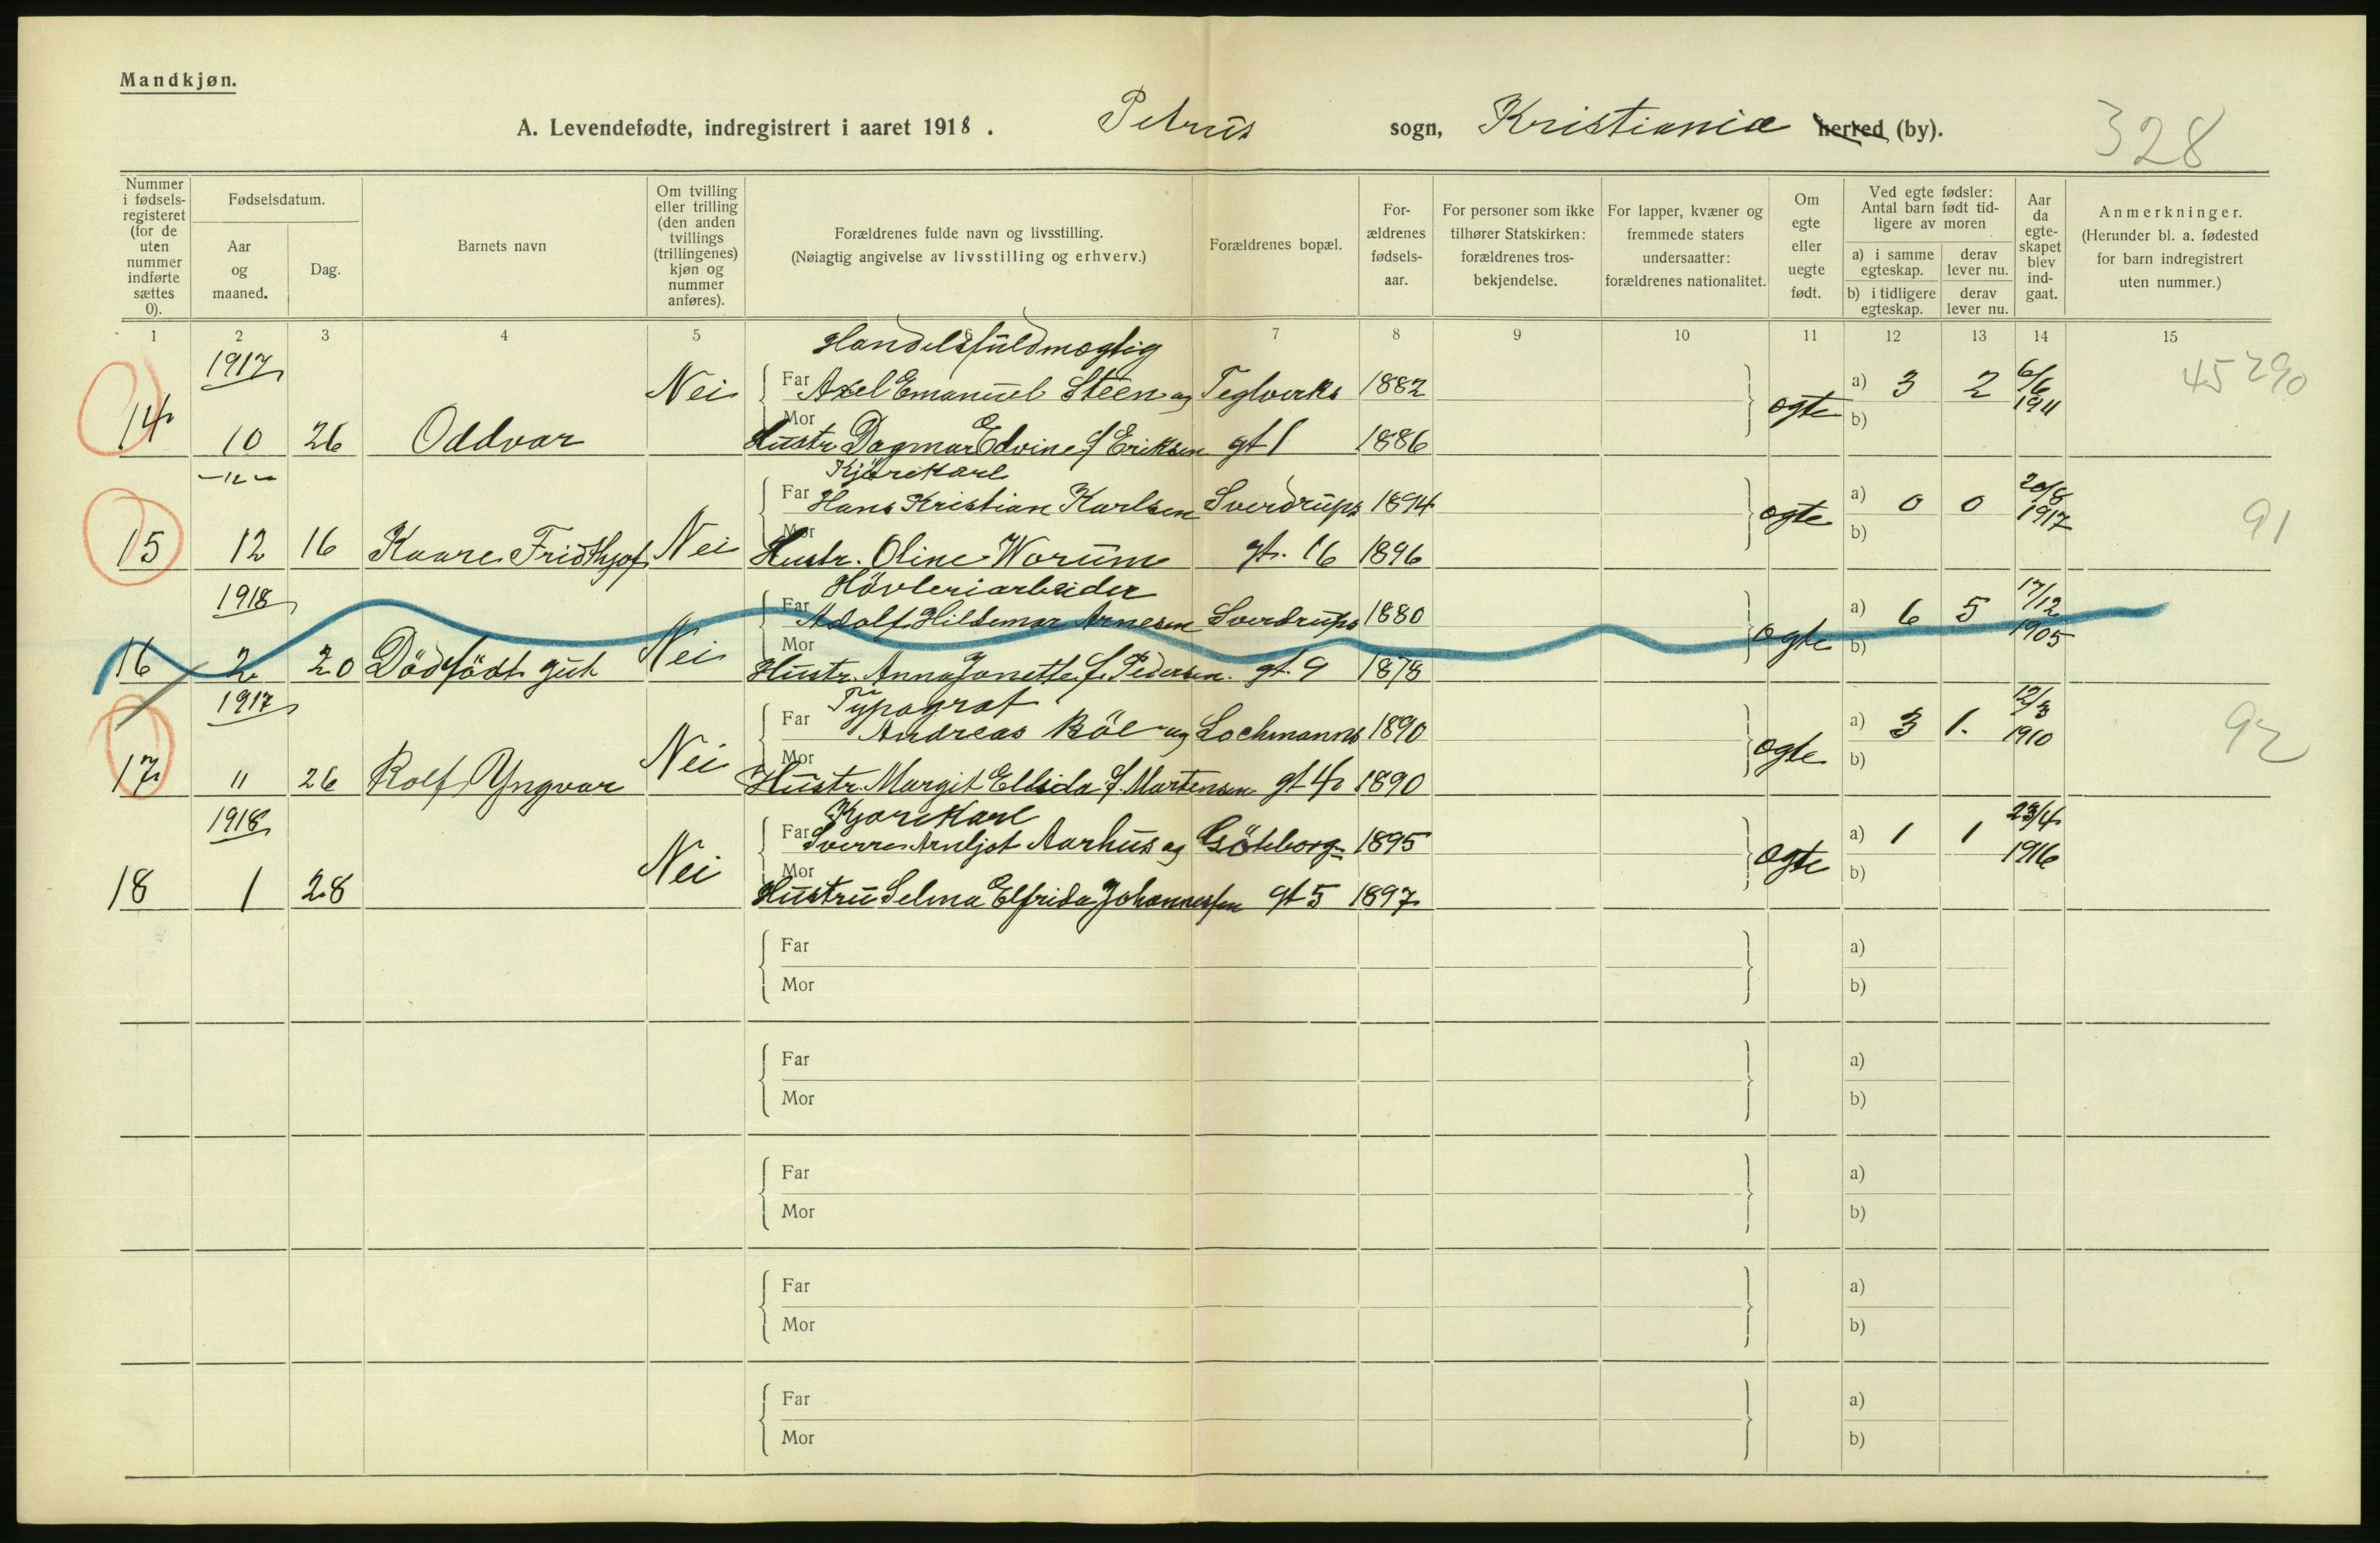 Mandkjøn.
A. Levendefødte, indregistrert i aaret 1918. Petrus sogn, Kristiania herred (by).
328
Nummer i fødselsregisteret (for de uten nummer indførte sættes 0).
Fødselsdatum.
Aar og maaned.
Dag.
Barnets navn
Om tvilling eller trilling (den anden tvillings (trillingenes) kjøn og nummer anføres).
Forældrenes fulde navn og livsstilling.
(Nøiagtig angivelse av livsstilling og erhverv.)
Forældrenes bopæl.
Forældrenes fødselsaar.
For personer som ikke tilhører Statskirken: forældrenes trosbekjendelse.
For lapper, kvæner og fremmede staters undersaatter: forældrenes nationalitet.
Om egte eller uegte født.
Ved egte fødsler: Antal barn født tidligere av moren
a) i samme egteskap. derav lever nu.
b) i tidligere egteskap. derav lever nu.
Aar da egteskapet blev indgaat.
Anmerkninger.
(Herunder bl. a. fødested for barn indregistrert uten nummer.)
1 2 3 4 5 6 7 8 9 10 11 12 13 14 15
1917 Handelsfuldmægtig
Nei Far Axel Emanuel Steen og Teglverks 1882 a) 3 2 6/6 1911 45290
14 10 26 Oddvar Mor Hustr. Dagmar Edvine f Eriksen gt 1 1886 egte b)
-"- Kjørekarl
Far Hans Kristian Karlsen Sverdrups 1894 a) 0 0 20/8 1917 91
15 12 16 Kaare Fridthjof Nei Mor Hustr. Oline Worum gt. 16 1896 egte b)
1918 Hövleriarbeider
Far Adolf Hildemar Arnesen Sverdrups 1880 a) 6 5 17/12 1905
16 2 20 Dödfödt gut Nei Mor Hustr. Anna Janette f. Pedersen gt. 9 1878 egte b)
1917 Typograf
Far Andreas Böe og Lochmanns 1890 a) 3 1. 12/3 1910 92
17 11 26 Rolf Yngvar Nei Mor Hustr. Margit Ellida f. Martensen gt 4 1890 egte b)
1918 Kjørekarl
Far Sverre Arnljot Aarhus og Göteborg- 1895 a) 1 1 23/4 1916
18 1 28 Nei Mor Hustru Selma Elfrida Johannessen gt 5 1897 egte b)
Far a)
Mor b)
Far a)
Mor b)
Far a)
Mor b)
Far a)
Mor b)
Far a)
Mor b)